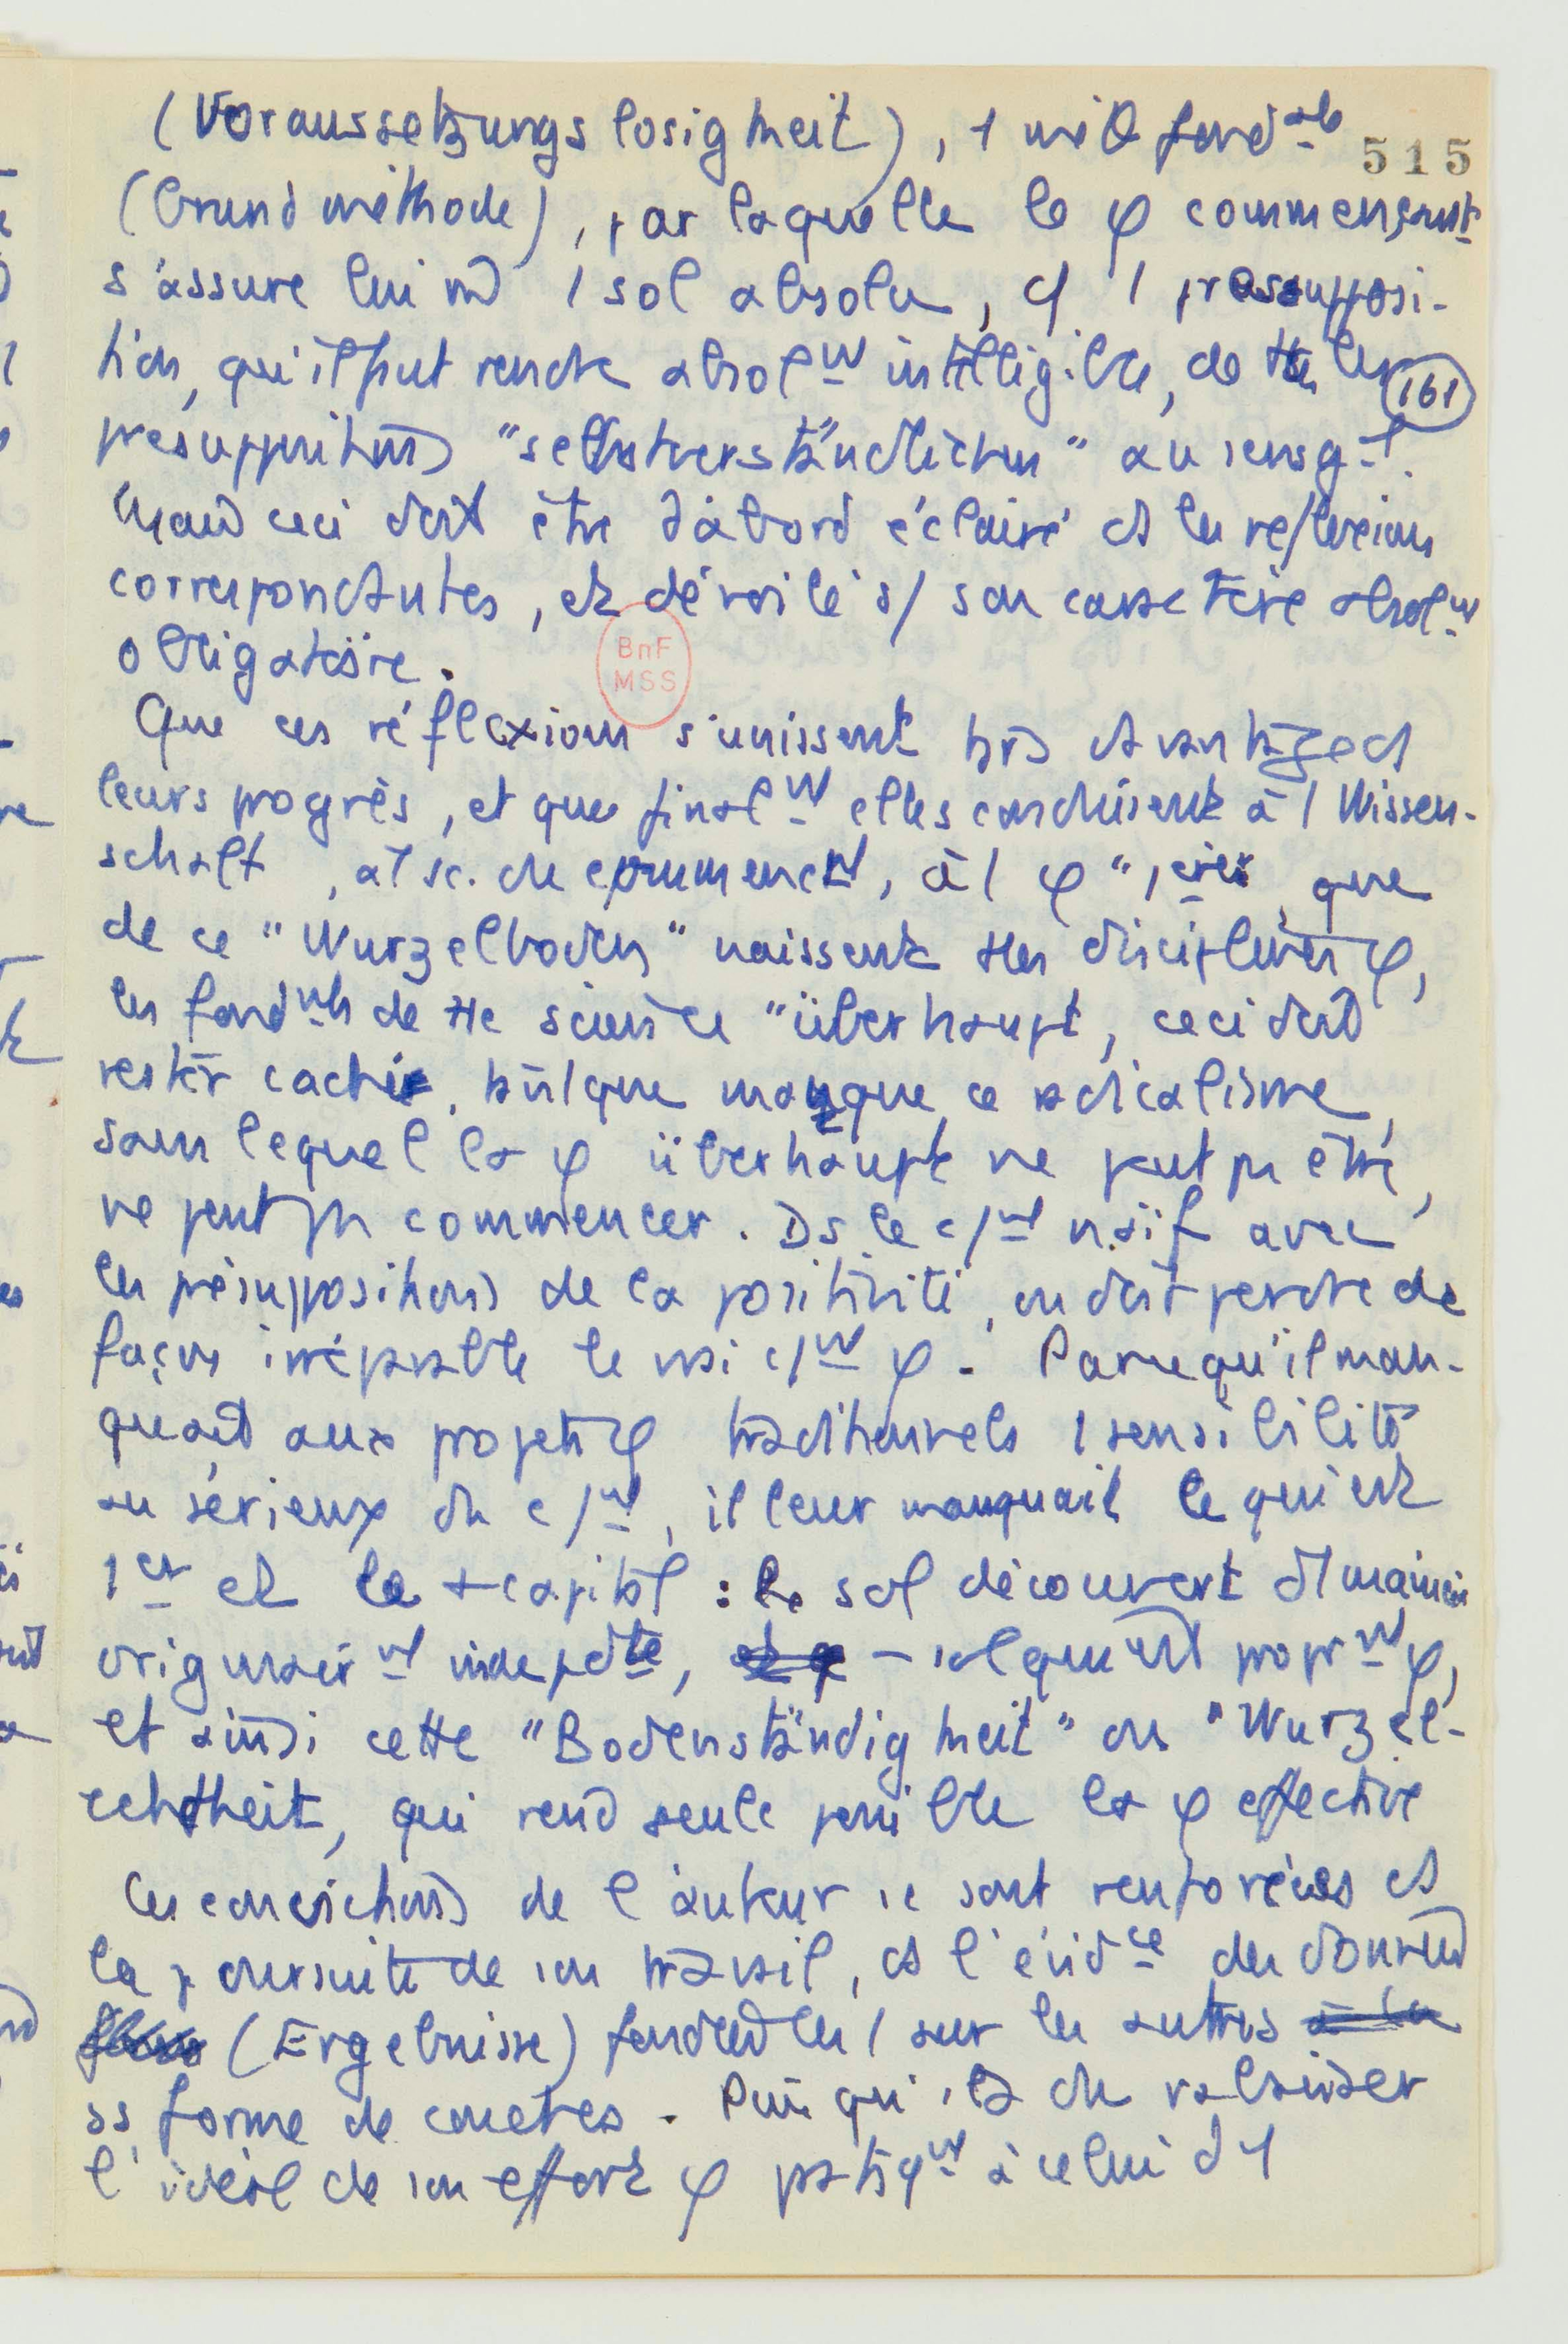 (Voraussetzungslosigkeit), 1 méth fondale
515
(Grundmethode), par laquelle le φ commençant
s'assure lui m̂ 1 sol absolu, cf 1 présupposi-
tion, qu'il peut rendre absolt intelligible, de ttes les
161
présuppositions "selbstverständlichen" au sens
Mais ceci doit être d'abord éclairé ds les réflexions
correspondantes, et dévoilé ds son caractère absolt
obligatoire.
BnF
MSS
Que ces réflexions s'unissent trs davantage ds
leurs progrès, et que finalt elles conduisent à 1 Wissen-
schaft, à 1 sc. du commenct, à 1 φ " 1ère, que
de ce "Wurzelboden" naissent ttes disciplines φ,
les fondmts de tte science "überhaupt, ceci doit
rester caché, tant que manque ce radicalisme,
sans lequel la φ überhaupt ne peut pas être,
ne peut pas commencer. Ds le c/mt naïf avec
les présuppositions de la positivité, on doit perdre de
façon irréparable le vrai c/mt φ. Parcequ'il man-
quait aux projets φ traditionnels 1 sensibilité
au sérieux du c/mt, il leur manquait ce qui est
1er et le + capital : le sol découvert d'1 manière
originairt indépdte, – sol qui est proprt φ,
et ainsi cette "Bodenständigkeit" ou "Wurzel-
echtheit, qui rend seule possible la φ effective
Les convictions de l'auteur se sont renforcées ds
la poursuite de son travail, ds l'évidce des données
(Ergebnisse) fondées les 1 sur les autres
ss forme de couches. Puisqu'il a du rabaisser
l'idéal de son effort φ pratiqt à celui d'1